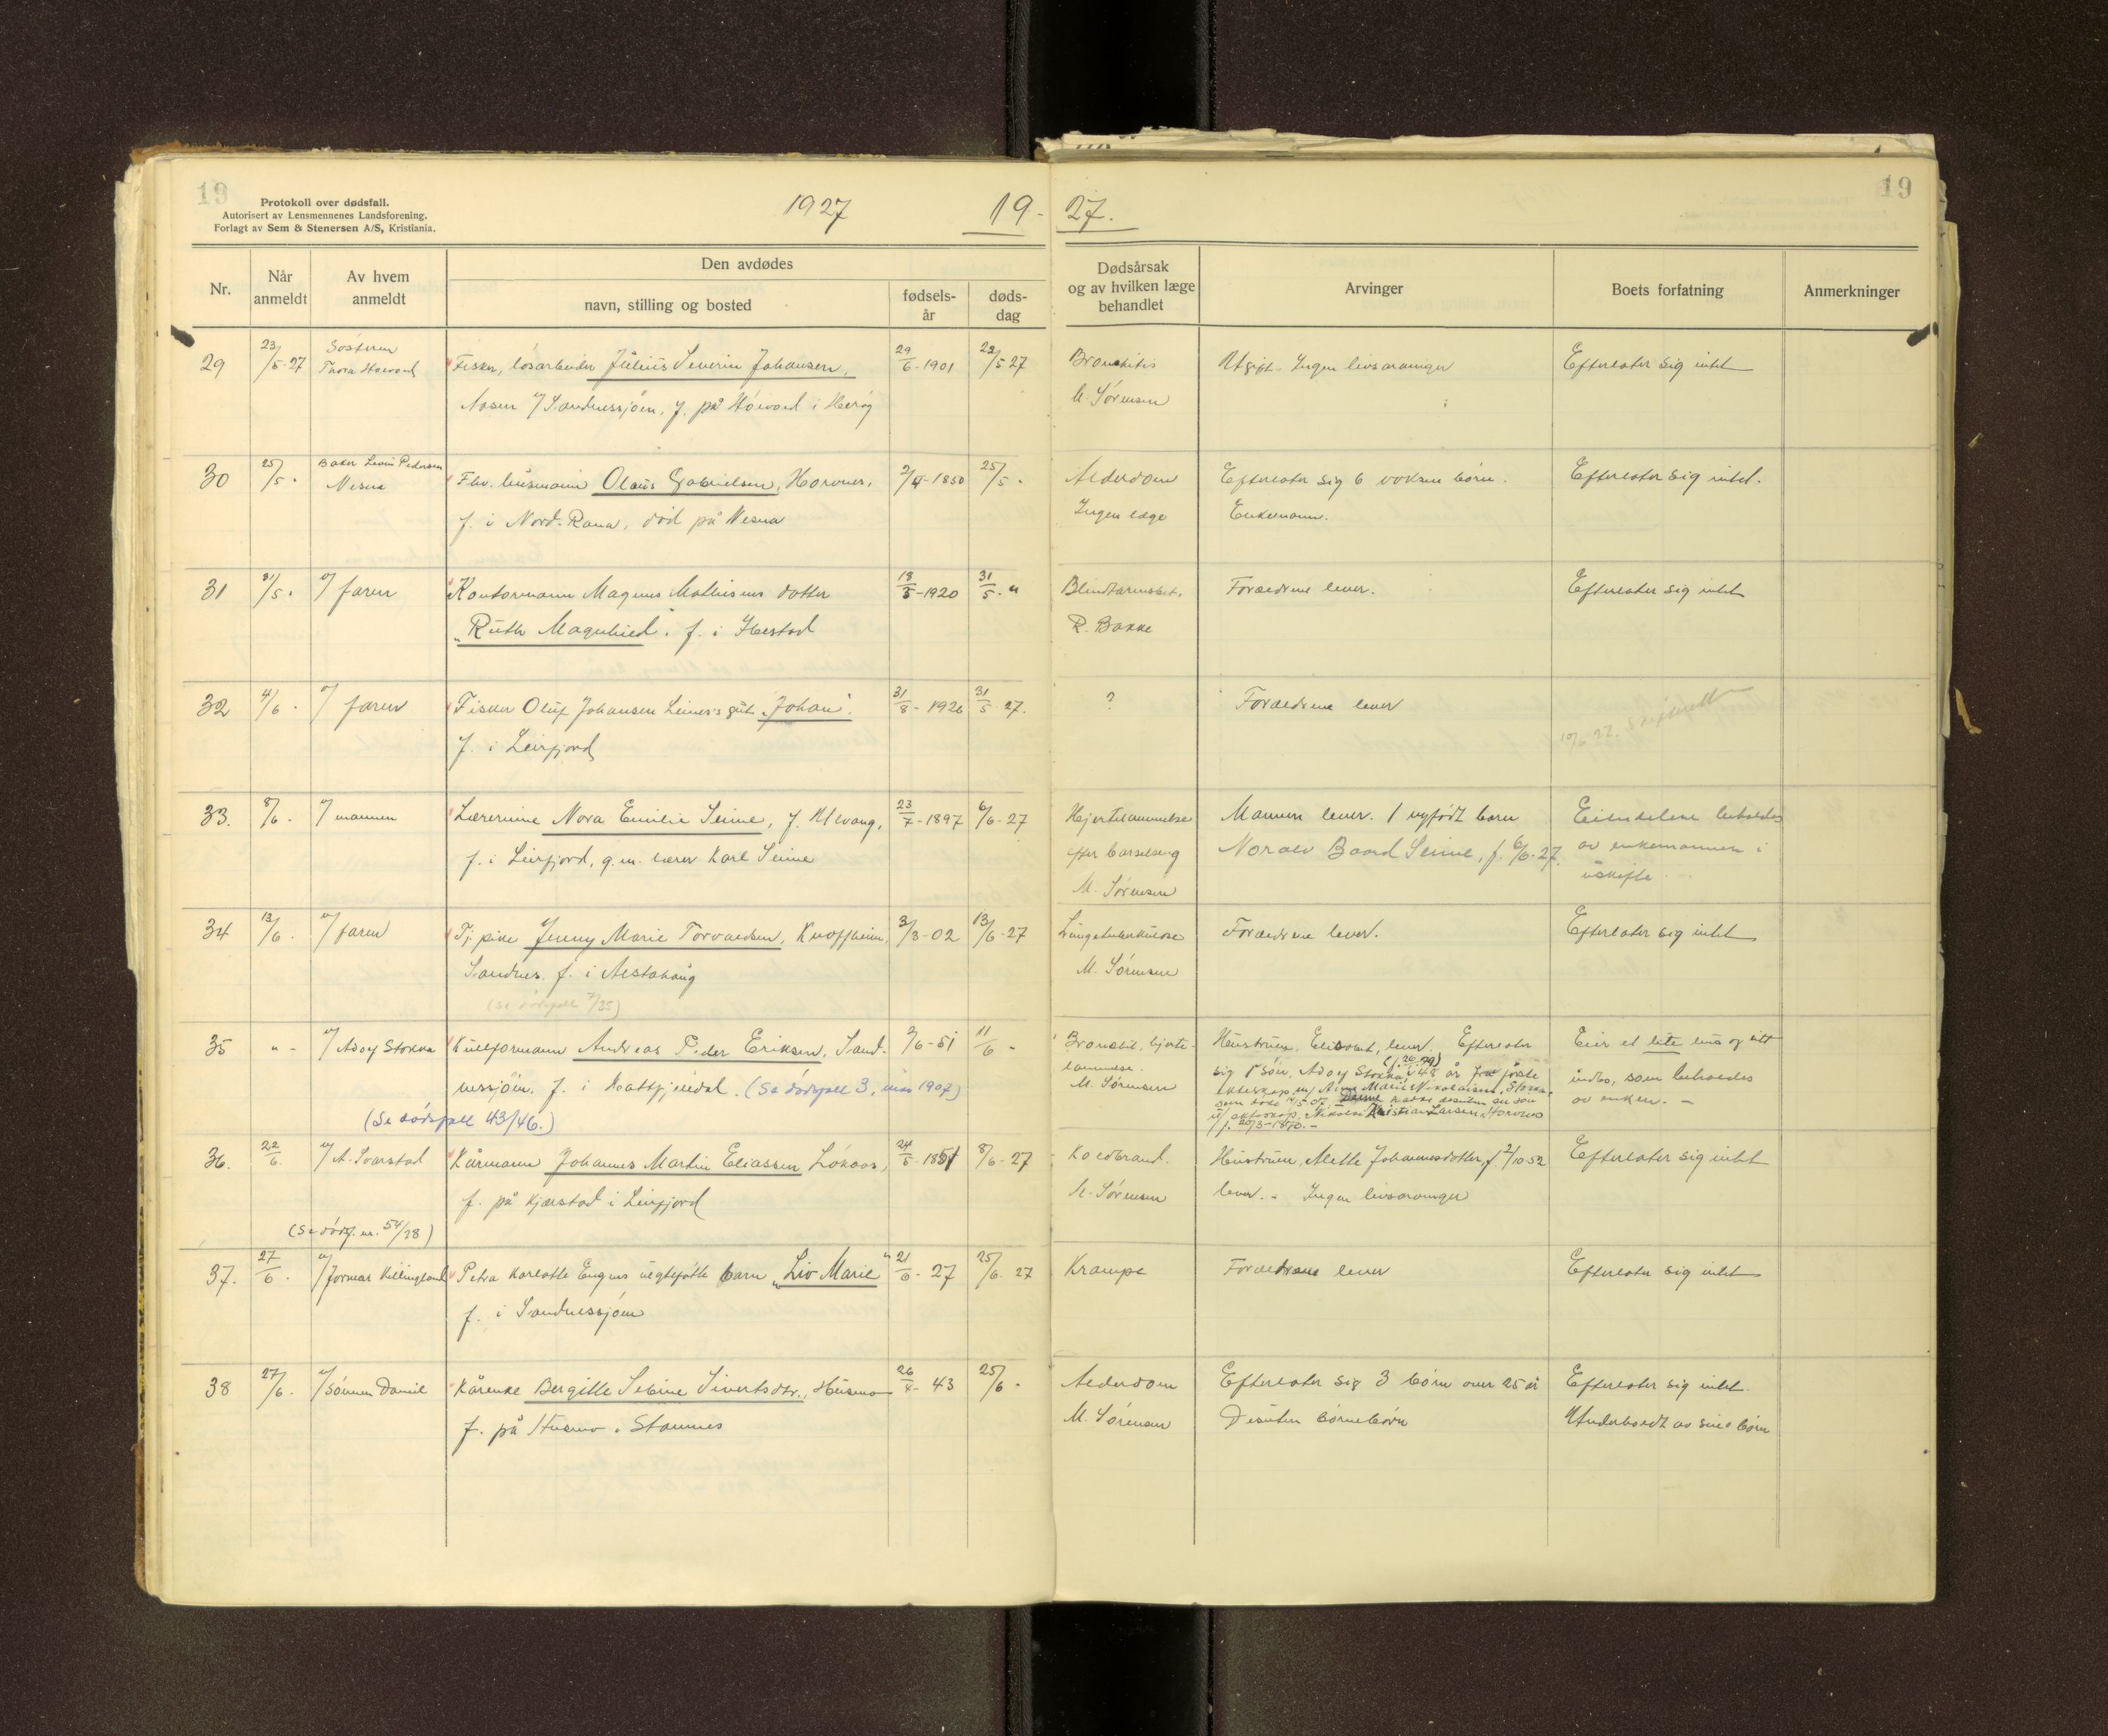 19
Protokoll over dødsfall.
Autorisert av Lensmennenes Landsforening.
Forlagt av Sem & Stenersen A/S, Kristiania.
1927
19-27.
19
Nr.
Når anmeldt
Av hvem anmeldt
Den avdødes
navn, stilling og bosted
fødsels-år
døds-dag
Dødsårsak og av hvilken læge behandlet
Arvinger
Boets forfatning
Anmerkninger
29 23/5-27 Søsteren Fisker, løsarbeider Julius Severin Johansen, 29/6-1901 22/5 27 Bronkitis Ugift. Ingen livsarvinger Efterlater sig intet
Thora Høivard Aasen v/ Sandnessjøen, f. på Høivard i Herøy M. Sørensen
30 25/5 - Baker Levin Pedersen Fhv. husmann Olaus Gabrielsen, Hornes, 2/4-1850 25/5 - Alderdom Efterlater sig 6 voksne børn. Efterlater sig intet.
Nesna f. i Nord-Rana, død på Nesna Ingen læge Enkemann.
31 31/5 - v/ faren Kontormann Magnus Mathisens datter 18/5-1920 31/5 - " Blindtarmsbet. Forældrene lever. Efterlater sig intet
"Ruth Magnhild". f. i Alstad R. Bakke
32 4/6 - v/ faren Fisker Oluf Johansen Leines gut "Johan". 31/8-1926 31/5 27. ? Forældrene lever
f. i Leirfjord 10/6 27. Skifterett
33. 8/6 - v/ mannen Lærerinne Nora Emilie Seine, f. Ulvang, 23/7-1897 6/6-27 Hjertelammelse Mannen lever. 1 nyfødt barn Eiendelene beholdes
f. i Leirfjord, g.m. lærer Karl Seine efter barselseng Noralv Baard Seine, f. 6/6-27. av enkemannen i
M. Sørensen uskifte.
34 13/6 - v/ faren Tj. pike Jenny Marie Torvaldsen, Kvofsheim, 3/3-02 13/6-27 Lungetuberkulose Forældrene lever. Efterlater sig intet
Sandnes. f. i Alstahaug M. Sørensen
(Se dødsfall 7/35)
35 " - v/ Adolf Stokka Kullformann Andreas Peder Eriksen, Sand- 2/6-51 11/6 - Bronchit, hjerte- Hustruen, Elisabet, lever. Efterlater Eier et lite hus og sitt
nessjøen. f. i Hattfjelldal. (Se dødsfall 3, 1907) lammelse. sig 1 søn, Adolf Stokka, 48 år fra første indbo, som beholdes
(Se dødsfall 43/46.) M. Sørensen ekteskap m/ Anne Marie Nikolaisen, Stokka, av enken. -
som døde 14/5-07. Denne hadde desuten en søn
u/ ekteskap. Nikolai Kristian Larsen, Hornes
f. 20/3-1870. -
36. 22/6 v/ A. Svarstad Kårmann Johannes Martin Eliassen Løkaas, 24/5-1851 8/6-27 Koldbrand. Hustruen, Mette Johannesdotter, f. 2/10 52 Efterlater sig intet
f. på Kjærstad i Leirfjord M. Sørensen lever. - Ingen livsarvinger
(Se dødsf. nr. 54/28)
37. 27/6 - v/ Formar Killingland Petra Karlotte Engens uegtefødte barn "Liv Marie" 21/6-27 25/6-27 Krampe Forældrene lever Efterlater sig intet
f. i Sandnessjøen
38 27/6 - v/ Sønnen Daniel Kårenke Bergitte Sebine Sivertsdtr., Husmo 26/4-43 25/6 - Alderdom Efterlater sig 3 børn over 25 år Efterlater sig intet.
f. på Husmo i Stamnes M. Sørensen Desuten børnebørn Underholdt av sine børn